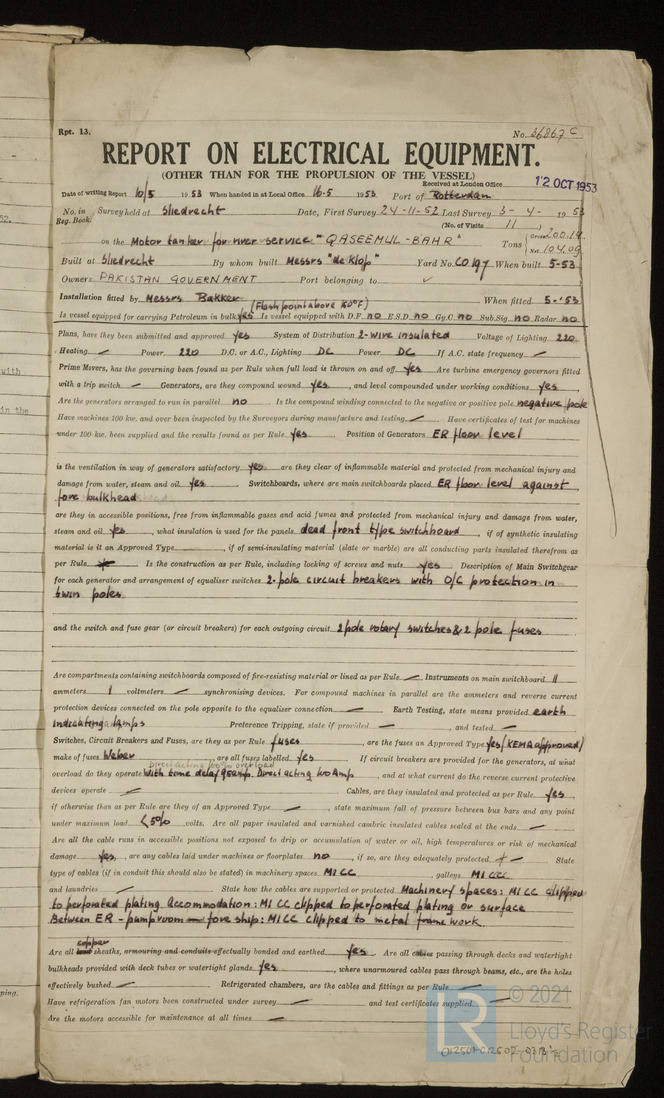 Rpt. 13.
No. 36867 C
REPORT ON ELECTRICAL EQUIPMENT.
(OTHER THAN FOR THE PROPULSION OF THE VESSEL)
Received at London Office 12 OCT 1953
Date of writing Report 10/5 1953 When handed in at Local Office 16-5 1953 Port of Rotterdam
No. in Reg. Book. Survey held at Sliedrecht Date, First Survey 24-11-52 Last Survey 3-4- 1953
(No. of Visits 11 )
on the Motor tanker for river service "QASEEMUL-BAHR" Tons Gross 200.19 Net 104.09
Built at Sliedrecht By whom built Messrs "de Klop" Yard No. CO 197 When built 5-53
Owners PAKISTAN GOVERNMENT Port belonging to ✓
Installation fitted by Messrs Bakker When fitted 5-'53
(Flash point above 150°F)
Is vessel equipped for carrying Petroleum in bulk yes Is vessel equipped with D.F. no E.S.D. no Gy.C. no Sub.Sig. no Radar no
Plans, have they been submitted and approved yes System of Distribution 2-wire insulated Voltage of Lighting 220
Heating — Power 220 D.C. or A.C., Lighting DC Power DC If A.C. state frequency —
Prime Movers, has the governing been found as per Rule when full load is thrown on and off yes Are turbine emergency governors fitted
with a trip switch — Generators, are they compound wound yes, and level compounded under working conditions yes,
Are the generators arranged to run in parallel no Is the compound winding connected to the negative or positive pole negative pole
Have machines 100 kw. and over been inspected by the Surveyors during manufacture and testing — Have certificates of test for machines
under 100 kw. been supplied and the results found as per Rule yes Position of Generators ER floor level
is the ventilation in way of generators satisfactory yes are they clear of inflammable material and protected from mechanical injury and
damage from water, steam and oil yes Switchboards, where are main switchboards placed ER floor level against
fore bulkhead
are they in accessible positions, free from inflammable gases and acid fumes and protected from mechanical injury and damage from water,
steam and oil yes, what insulation is used for the panels dead front type switchboard, if of synthetic insulating
material is it an Approved Type, if of semi-insulating material (slate or marble) are all conducting parts insulated therefrom as
per Rule Is the construction as per Rule, including locking of screws and nuts yes Description of Main Switchgear
for each generator and arrangement of equaliser switches 2-pole circuit breakers with O/C protection in
twin poles
and the switch and fuse gear (or circuit breakers) for each outgoing circuit 2 pole rotary switches & 2 pole fuses
Are compartments containing switchboards composed of fire-resisting material or lined as per Rule — Instruments on main switchboard 11
ammeters 1 voltmeters — synchronising devices. For compound machines in parallel are the ammeters and reverse current
protection devices connected on the pole opposite to the equaliser connection — Earth Testing, state means provided earth
indicating lamps Preference Tripping, state if provided —, and tested —
Switches, Circuit Breakers and Fuses, are they as per Rule fuses, are the fuses an Approved Type yes (KEMA approved)
make of fuses Weber, are all fuses labelled yes If circuit breakers are provided for the generators, at what
overload do they operate With time delay 95amp. Direct acting 100 Amp, and at what current do the reverse current protective
devices operate — Cables, are they insulated and protected as per Rule yes
if otherwise than as per Rule are they of an Approved Type —, state maximum fall of pressure between bus bars and any point
under maximum load <5% volts. Are all paper insulated and varnished cambric insulated cables sealed at the ends —
Are all the cable runs in accessible positions not exposed to drip or accumulation of water or oil, high temperatures or risk of mechanical
damage yes, are any cables laid under machines or floorplates no, if so, are they adequately protected — State
type of cables (if in conduit this should also be stated) in machinery spaces MICC, galleys MICC
and laundries — State how the cables are supported or protected Machinery spaces: MICC clipped
to perforated plating Accommodation: MI CC clipped to perforated plating or surface
Between ER - pumproom — fore ship: MICC clipped to metal frame work
Are all copper sheaths, armouring and conduits effectually bonded and earthed yes Are all cables passing through decks and watertight
bulkheads provided with deck tubes or watertight glands yes, where unarmoured cables pass through beams, etc., are the holes
effectively bushed — Refrigerated chambers, are the cables and fittings as per Rule —
Have refrigeration fan motors been constructed under survey — and test certificates supplied —
Are the motors accessible for maintenance at all times —
© 2021
Lloyd's Register
Foundation